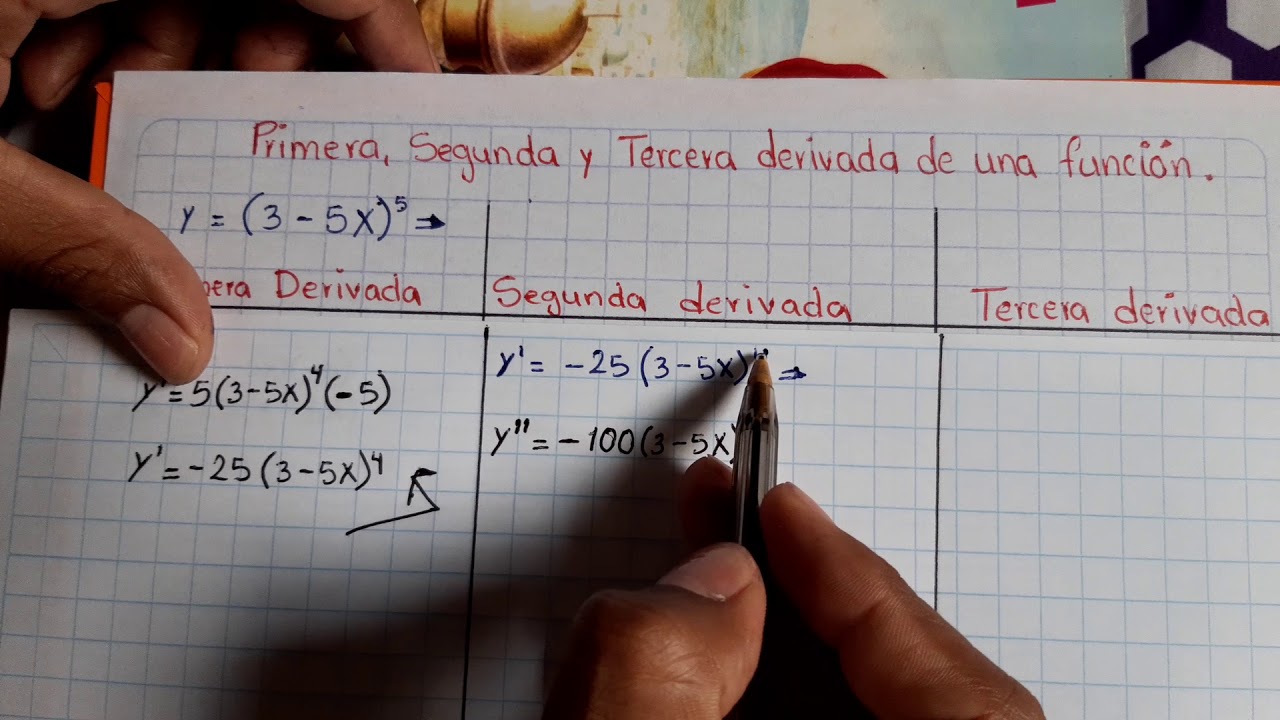 Primera, Segunda y Tercera derivada de una función.
y = (3 - 5x)⁵ →
Derivada
Segunda derivada
Tercera derivada
y' = 5(3-5x)⁴(-5)
y' = -25(3-5x)⁴
y' = -25(3-5x) →
y'' = -100(3-5x